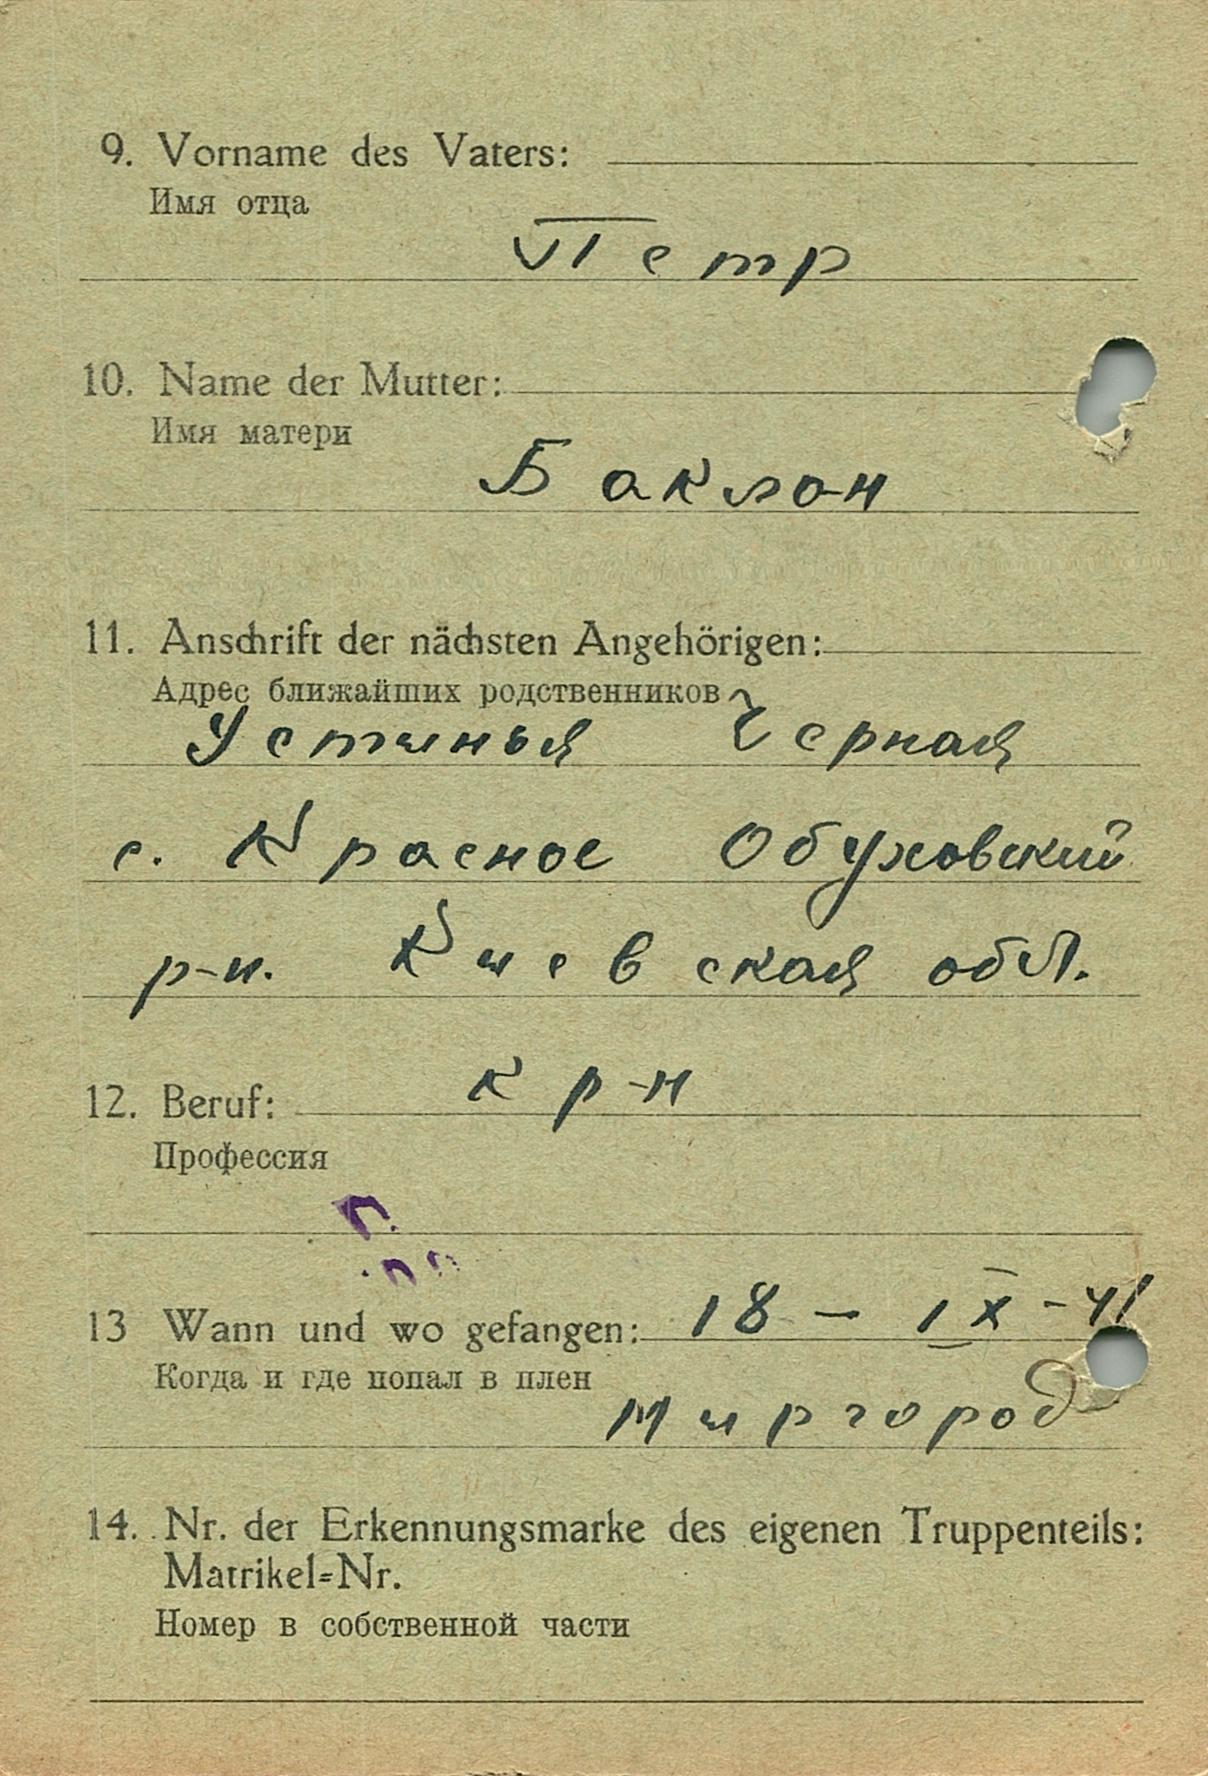 9. Vorname des Vaters:
Имя отца
Петр
10. Name der Mutter:
Имя матери
Баклан
11. Anschrift der nächsten Angehörigen:
Адрес ближайших родственников
Устинья Черная
с. Красное Обуховский
р-н. Киевская обл.
12. Beruf: кр-н
Профессия
13 Wann und wo gefangen: 18 - IX - 41
Когда и где попал в плен
Миргород
14. Nr. der Erkennungsmarke des eigenen Truppenteils:
Matrikel=Nr.
Номер в собственной части